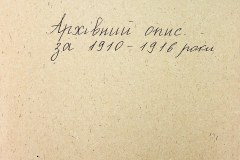 Архівний опис.
за 1910-1916 роки